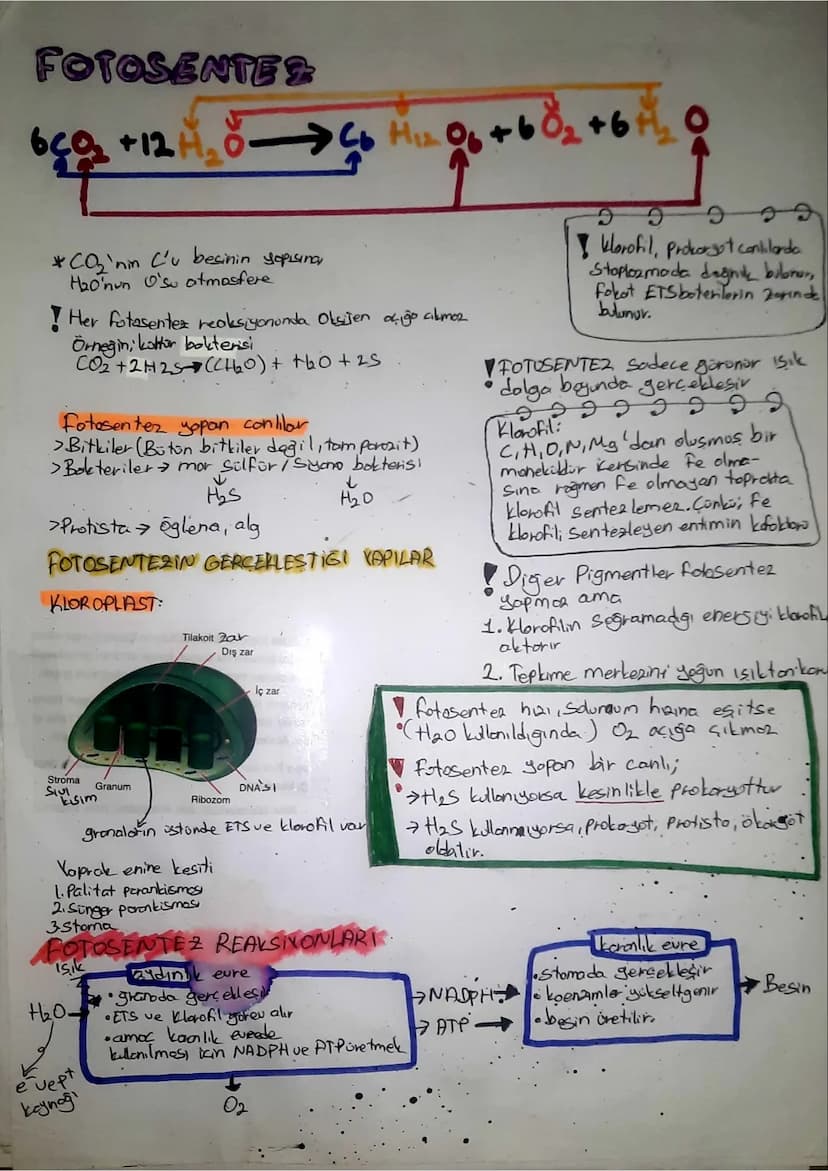 FOTOSENTEZ
6CO2 +12 H2O → C6 H12 O6 + 6 O2 + 6 H2 O
*CO2'nin C'u besinin yapısına
H2O'nun O'su atmosfere
! Her fotosentez reaksiyonunda Oksijen açığa çıkmaz
Örneğin; kükür bakterisi
CO2 + 2H2S → (CH2O) + H2O + 2S
! Klorofil, prokaryot canlılarda
Stoplazmada dağınık bulunur,
fakat ETS baterilerin zarında
bulunur.
! FOTOSENTEZ sadece görünür ışık
dalga boyunda gerçekleşir
Klorofil:
C, H, O, N, Mg'dan oluşmuş bir
moneküldür içersinde Fe olma-
sına rağmen Fe olmayan toprakta
klorofil sentezlemez. Çünkü; Fe
klorofili sentezleyen enzimin kofaktörü
Fotosentez yapan canlılar
>Bitkiler (Bütün bitkiler değil, tam parazit)
>Bakteriler → mor sülfür / Siyano bakterisi
↓ ↓
H2S H2O
>Protista → öglena, alg
FOTOSENTEZİN GERÇEKLEŞTİĞİ YAPILAR
KLOROPLAST:
Tilakoit zar
Dış zar
İç zar
Stroma
Sıvı
kısım
Granum
Ribozom
DNA'sı
granaların üstünde ETS ve klorofil var
! Diğer Pigmentler fotosentez
yapmaz ama
1. Klorofilin soğramadığı enerjiyi klorofil
aktarır
2. Tepkime merkezini yoğun ışıktan
! fotosentez hızı, solunum hızına eşitse
(H2O kullanıldığında) O2 açığa çıkmaz
! fotosentez yapan bir canlı;
→ H2S kullanıyorsa kesinlikle prokaryottur
→ H2S kullanmıyorsa, prokaryot, protista, ökaryot
olabilir.
Yaprak enine kesiti
1. Palizat parankisması
2. Sünger parankisması
3. Stoma
FOTOSENTEZ REAKSİYONLARI
Işık
aydınlık evre
• granada gerçekleşir
• ETS ve klorofil görev alır
• amaç karanlık evrede
kullanılması için NADPH ve ATP üretmek
H2O →
e- ve p+
kaynağı
O2
→ NADPH →
→ ATP →
karanlık evre
• stomada gerçekleşir
• koenzimler yükseltgenir
• besin üretilir.
→ Besin